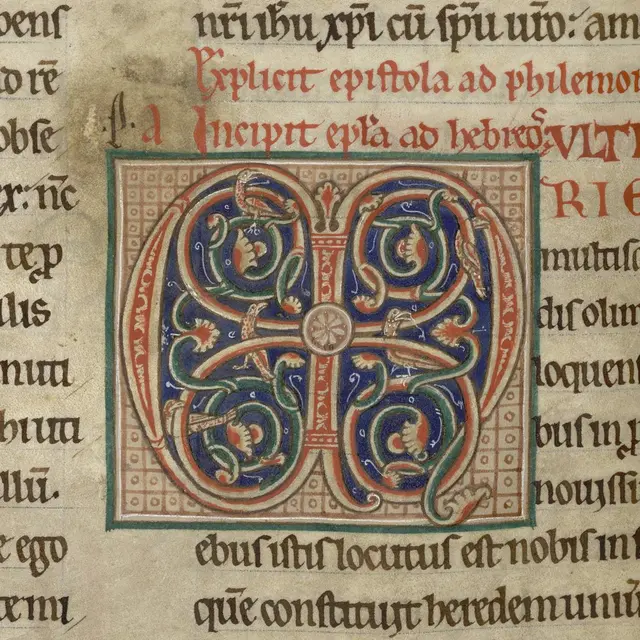 bens
do rē
obse
ex: n̄c
texp̄
illis
nuti
hiuti
illū.
e ego
temi
nr̄i ih̄u xp̄i cū sp̄u ur̄o: am
Explicit epistola ad philemon
p. a Incipit ep̄la ad hebreos. VLTI
RIE
multisq
dis olim
loquens
bus in p
nouissi
ebus istis locutus est nobis in f
quē constituit heredem uniu